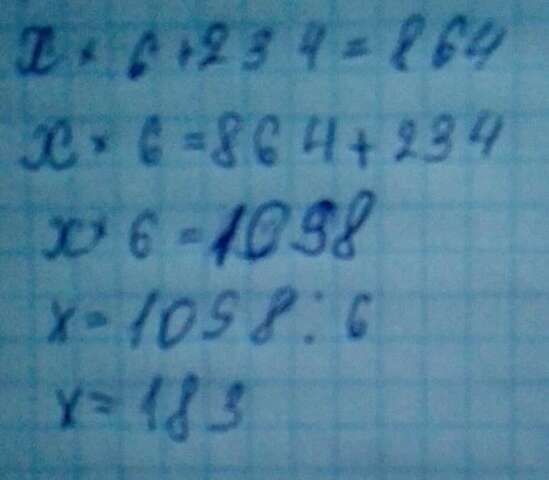 x × 6 + 234 = 864
x × 6 = 864 + 234
x × 6 = 1098
x = 1098 : 6
x = 183